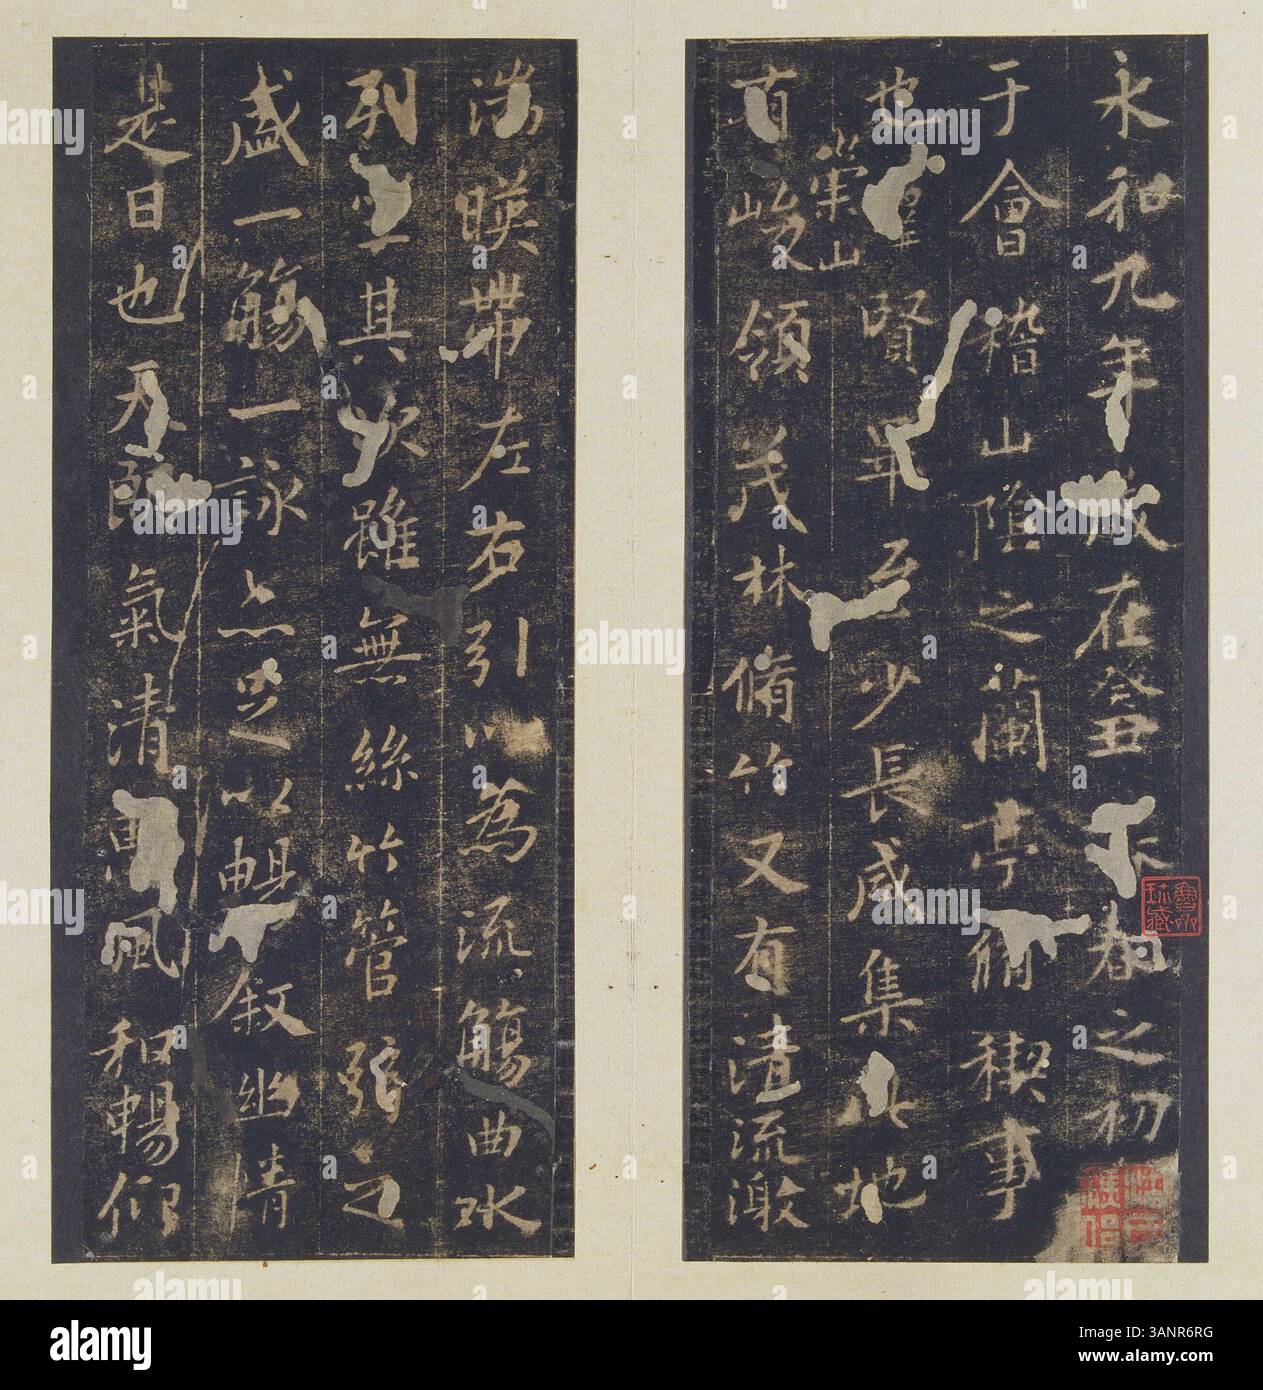 永和九年歲在癸丑暮春之初
于會稽山陰之蘭亭脩禊事
也羣賢畢至少長咸集此地
崇山
有峻領茂林脩竹又有清流激
湍暎帶左右引以為流觴曲水
列坐其次雖無絲竹管弦之
盛一觴一詠亦足以暢敘幽情
是日也天朗氣清惠風和暢仰
alamy
Image ID: 3ANR6RG
www.alamy.com